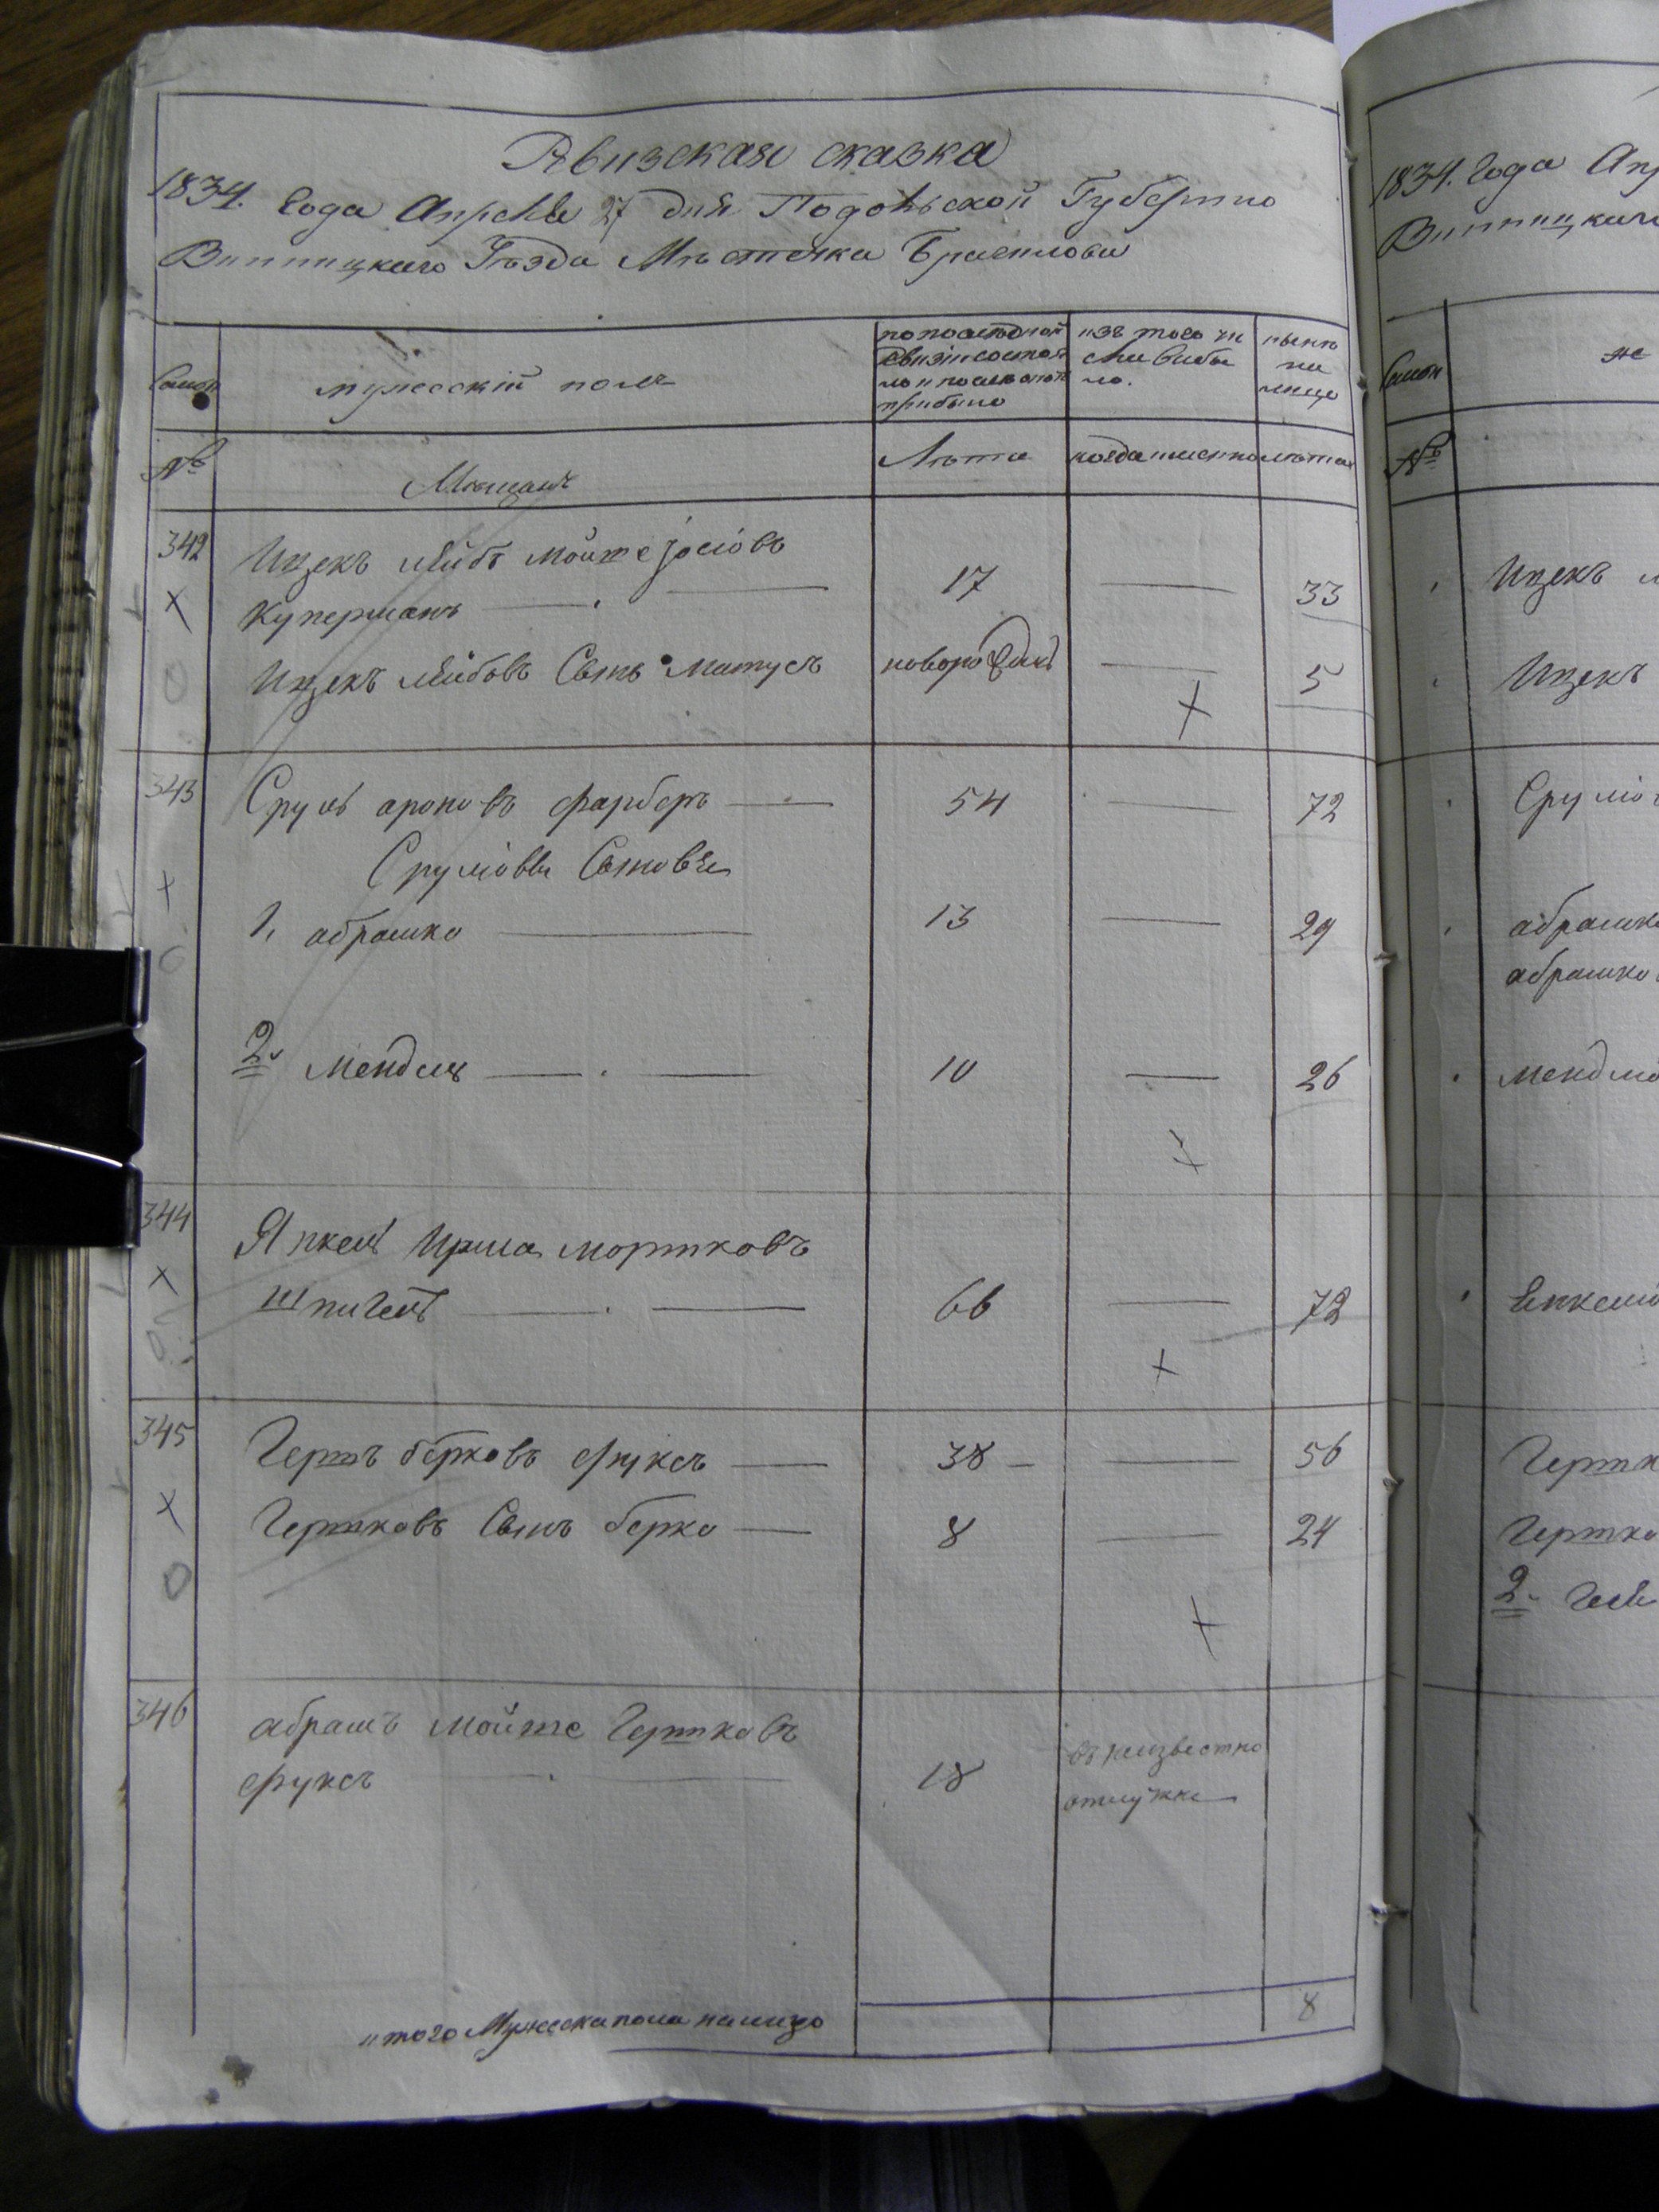 Рѣвизская сказка
1834. Года Апреля 27 дня Подольской Губернии
Винницкаго Уѣзда Мѣстечка Браилова
Семьи
мужескій полъ
по последней
ревизіи состоя
ло и после оной
прибыло
изъ того чи
сла выбы
ло.
ныне
на
лицо
№
Мѣщане
Лѣта
когда именно
лѣта
342
Ицекъ Лейбъ мойше іосіовъ
Куперманъ
17
33
Ицекъ Лейбовъ Сынъ Матусъ
новорожденъ
5
343
Сруль ароновъ фарберъ
54
72
Сруліовы Сыновья
1, абрашко
13
29
2. Мендель
10
26
344
Янкель Ирша мортковъ
шпигель
66
72
345
Гершъ берковъ фуксъ
38
56
Гершковъ Сынъ берко
8
24
346
абрамъ мойше Гершковъ
фуксъ
18
въ неизвестно
отлучке
итого Мужеска пола налицо
8
1834. Года Апр
Винницкаго
Семьи
же
№
Ицекъ
Ицекъ
абрашко
абрашко
2.